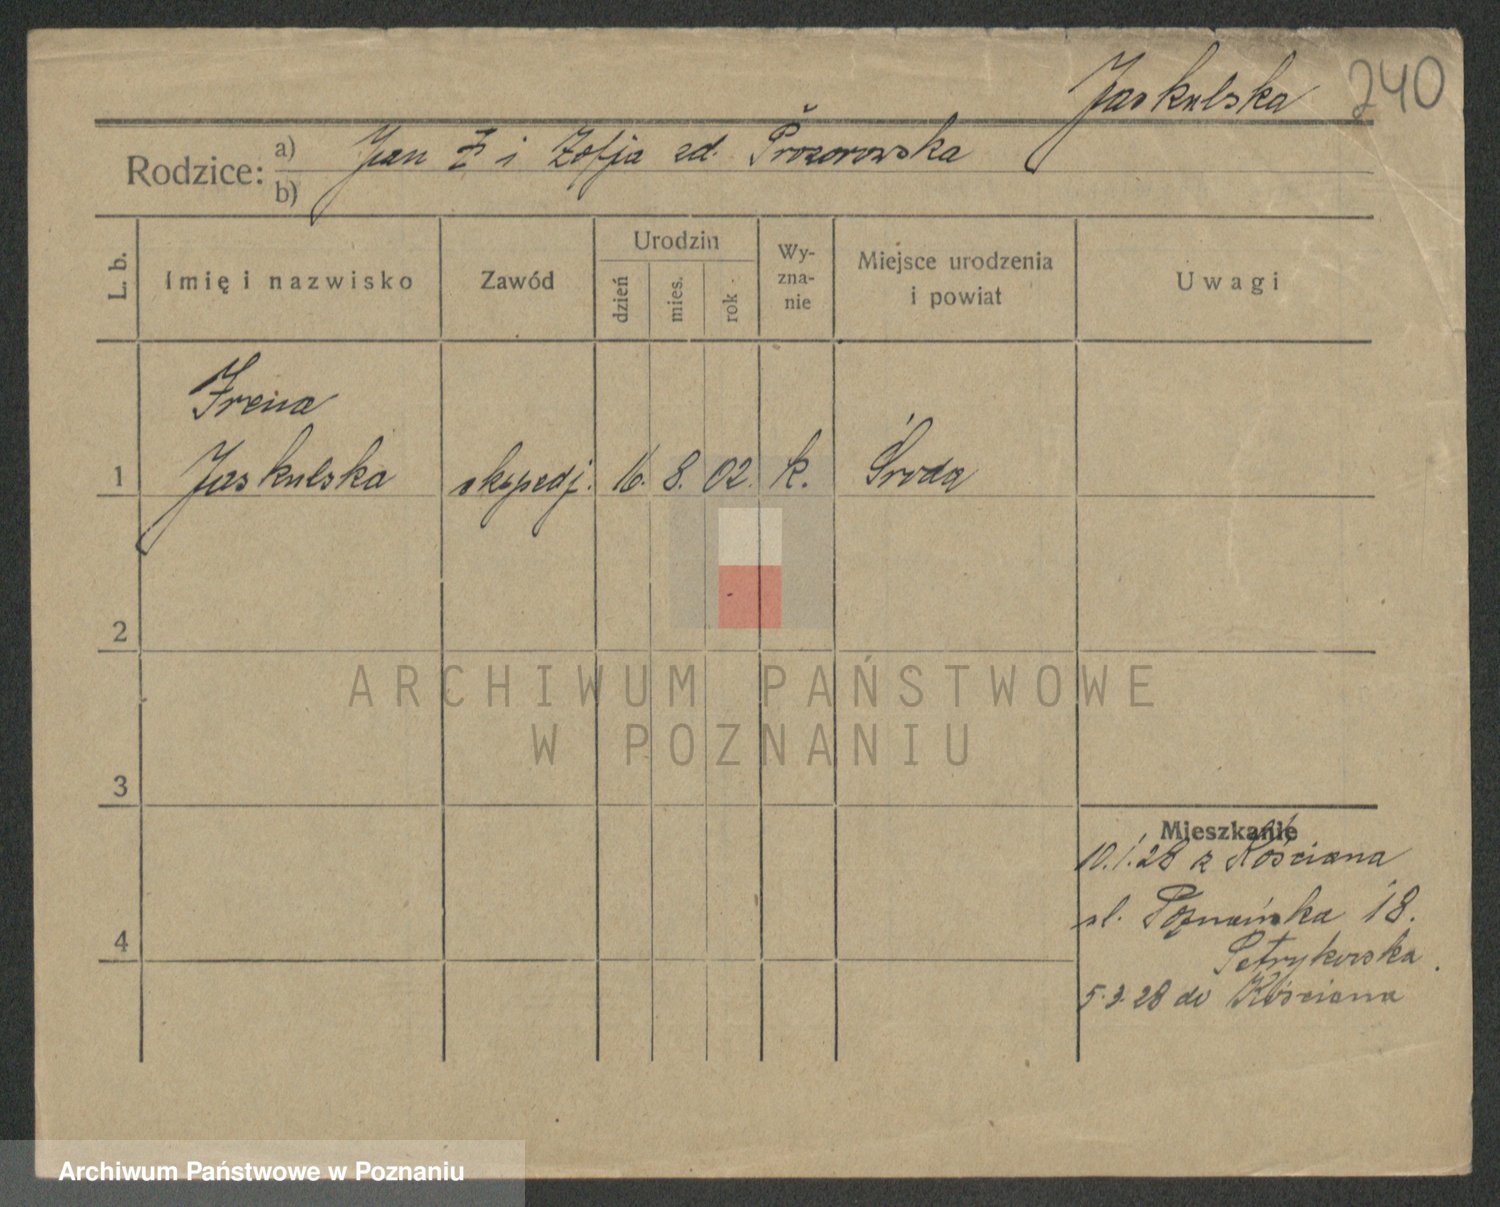 Jaskulska 240
Rodzice: a) Jan i Zofja zd. Prozorowska
b)
L. b.
Imię i nazwisko
Zawód
Urodzin
dzień
mies.
rok
Wy-
zna-
nie
Miejsce urodzenia
i powiat
Uwagi
Irena
1 Jaskulska ekspedj. 16. 8. 02. k. Środa
2
3
4
Mieszkanie
10.1.28 z Kościana
ul. Poznańska 18.
Petrykowska.
5.3.28 do Kościana
ARCHIWUM PAŃSTWOWE
W POZNANIU
Archiwum Państwowe w Poznaniu